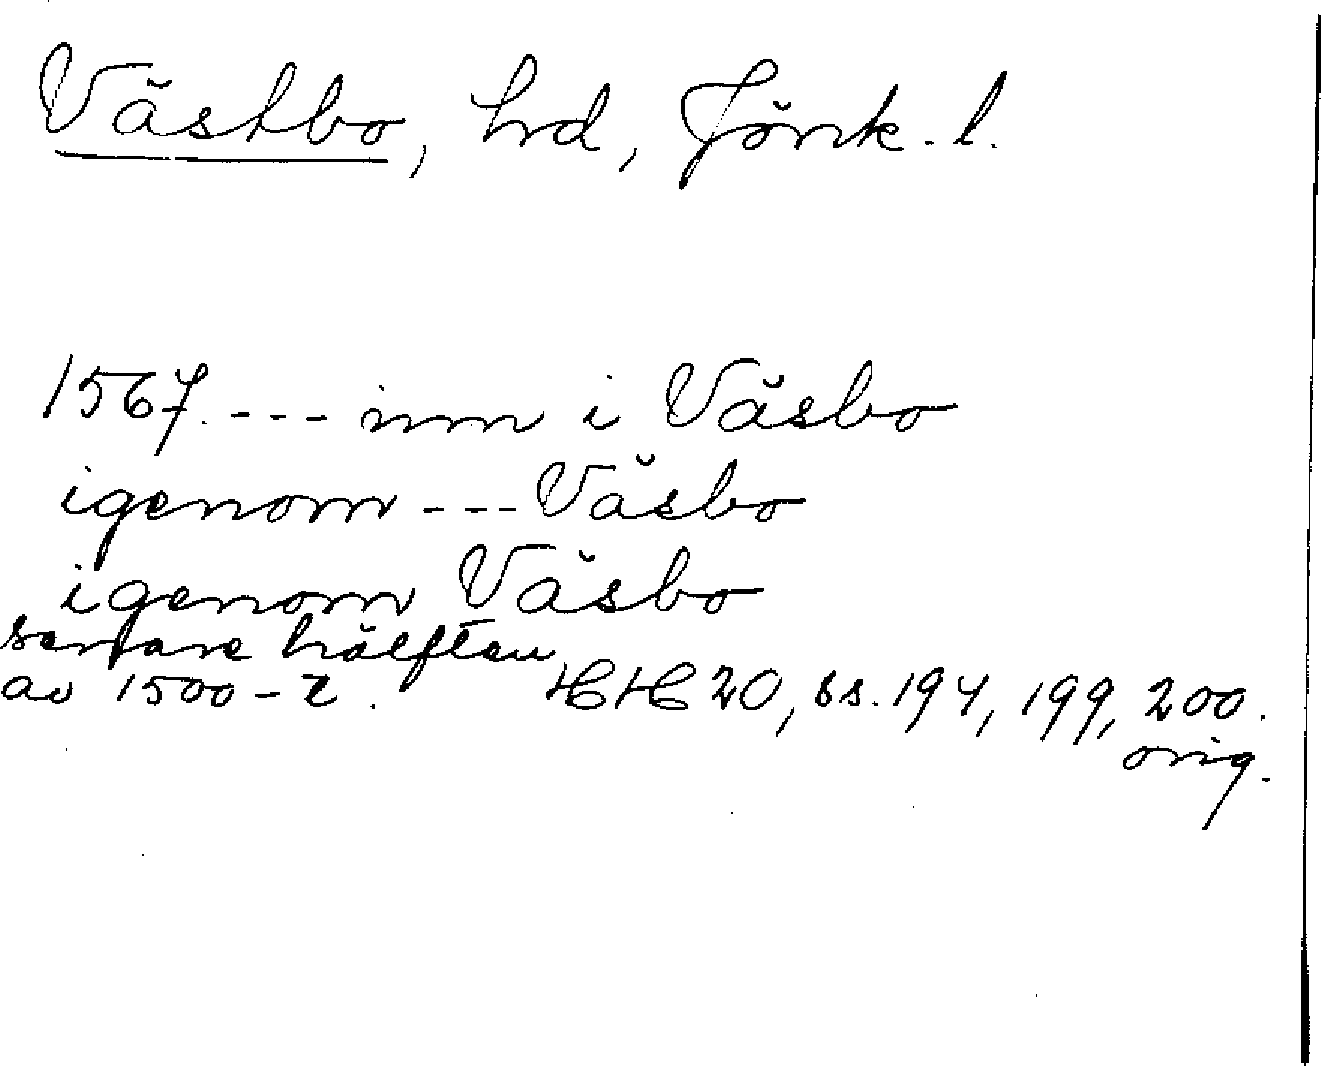 Västbo, hrd, Jönk. l.
1567. --- inn i Väsbo
igenom --- Väsbo
igenom Väsbo
senare hälften
av 1500-t. HH 20, ss. 194, 199, 200.
orig.